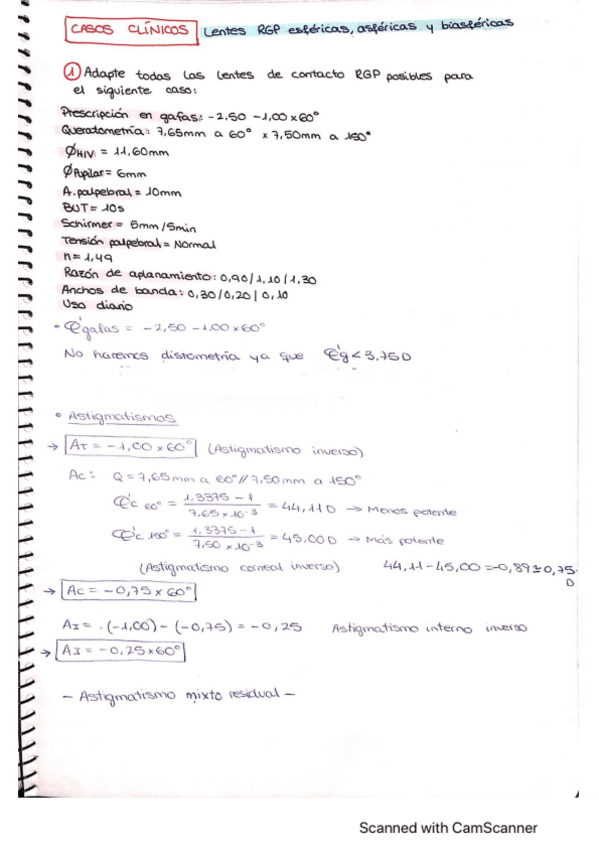 CASOS CLÍNICOS Lentes RGP esféricas, asféricas y biasféricas
① Adapte todas las lentes de contacto RGP posibles para
el siguiente caso:
Prescripción en gafas: -2,50 -1,00 x 60°
Queratometría: 7,65mm a 60° x 7,50mm a 150°
ØHIV = 11,60mm
ØPupilar = 6mm
A. palpebral = 10mm
BUT = 10s
Schirmer = 5mm/5min
Tensión palpebral = Normal
n = 1,49
Razón de aplanamiento: 0,90/1,10/1,30
Anchos de banda: 0,30/0,20/0,10
Uso diario
gafas = -2,50 -1,00 x 60°
No haremos distometría ya que g < 3,75D
• Astigmatismos
→ AT = -1,00 x 60° (Astigmatismo inverso)
Ac: Q = 7,65mm a 60° // 7,50mm a 150°
c 60° = 1,3375 - 1 / 7,65 x 10-3 = 44,11D → Menos potente
c 150° = 1,3375 - 1 / 7,50 x 10-3 = 45,00D → Más potente
(Astigmatismo corneal inverso) 44,11 - 45,00 = -0,89 ≅ 0,75 D
→ AC = -0,75 x 60°
AI = (-1,00) - (-0,75) = -0,25 Astigmatismo interno inverso
→ AI = -0,25 x 60°
- Astigmatismo mixto residual -
Scanned with CamScanner